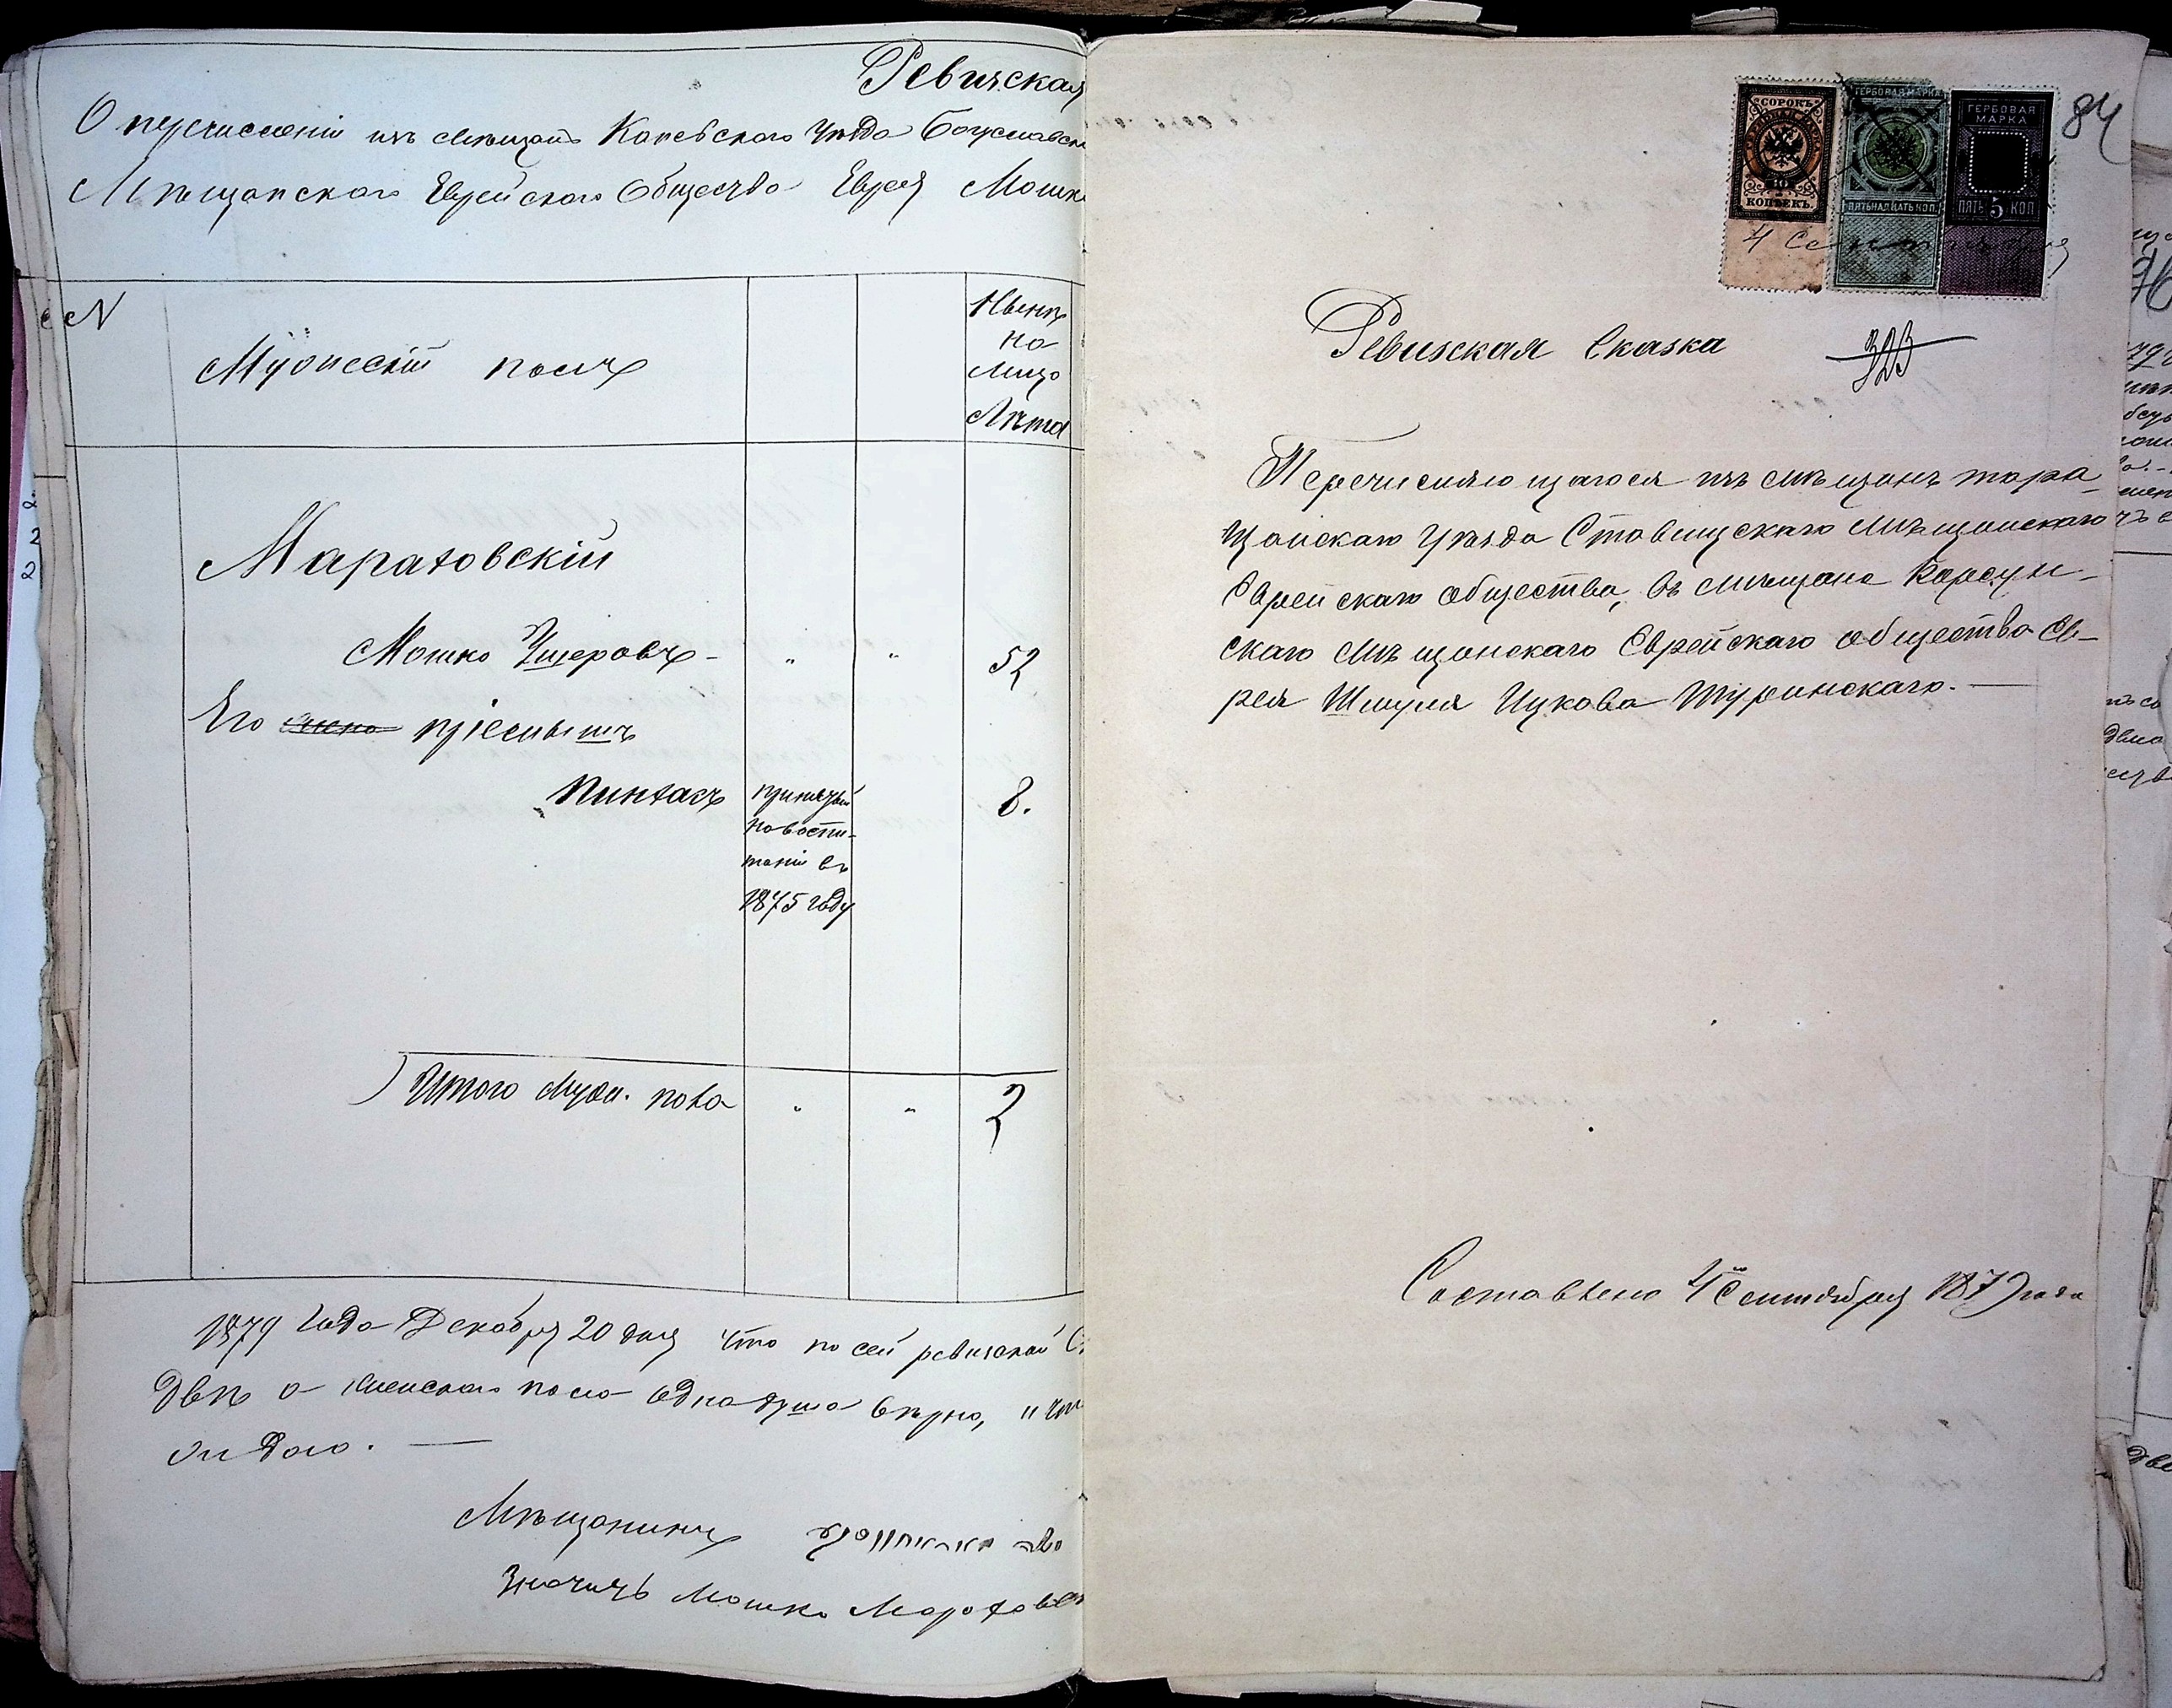 Ревизская
О перечисленіи изъ мѣщанъ Каневскаго Уѣзда Богуславска
Мѣщанскаго Еврейскаго Общества Еврея Мошк
N
Мужескій полъ
Нынѣ
на
лицо
Лѣта
Маратовскій
Мошко Ушеровъ - " " 52
Его пріемышъ
Пинхасъ 8.
принятый
на воспи-
таніи въ
1875 году
Итого муж. пола " " 2
1879 года Декабря 20 дня что по сей ревизской С
Двѣ а женскаго пола одна душа вѣрно, и что
Мѣщанинъ
Значитъ Мошко Маратовск
84
СОРОКЪ
КОПѢЕКЪ.
ГЕРБОВАЯ МАРКА
ПЯТЬНАДЦАТЬ КОП.
ГЕРБОВАЯ
МАРКА
ПЯТЬ 5 КОП
4 Сентября
Ревизская Сказка
323
Перечисляющагося изъ мѣщанъ тара-
щанскаго уѣзда Ставищскаго мѣщанскаго
Еврейскаго общества, въ мѣщане Корсун-
скаго мѣщанскаго Еврейскаго общества Ев-
рея Шмуля Ицкова Туринскаго. —
Составлено 4 Сентября 1879 года